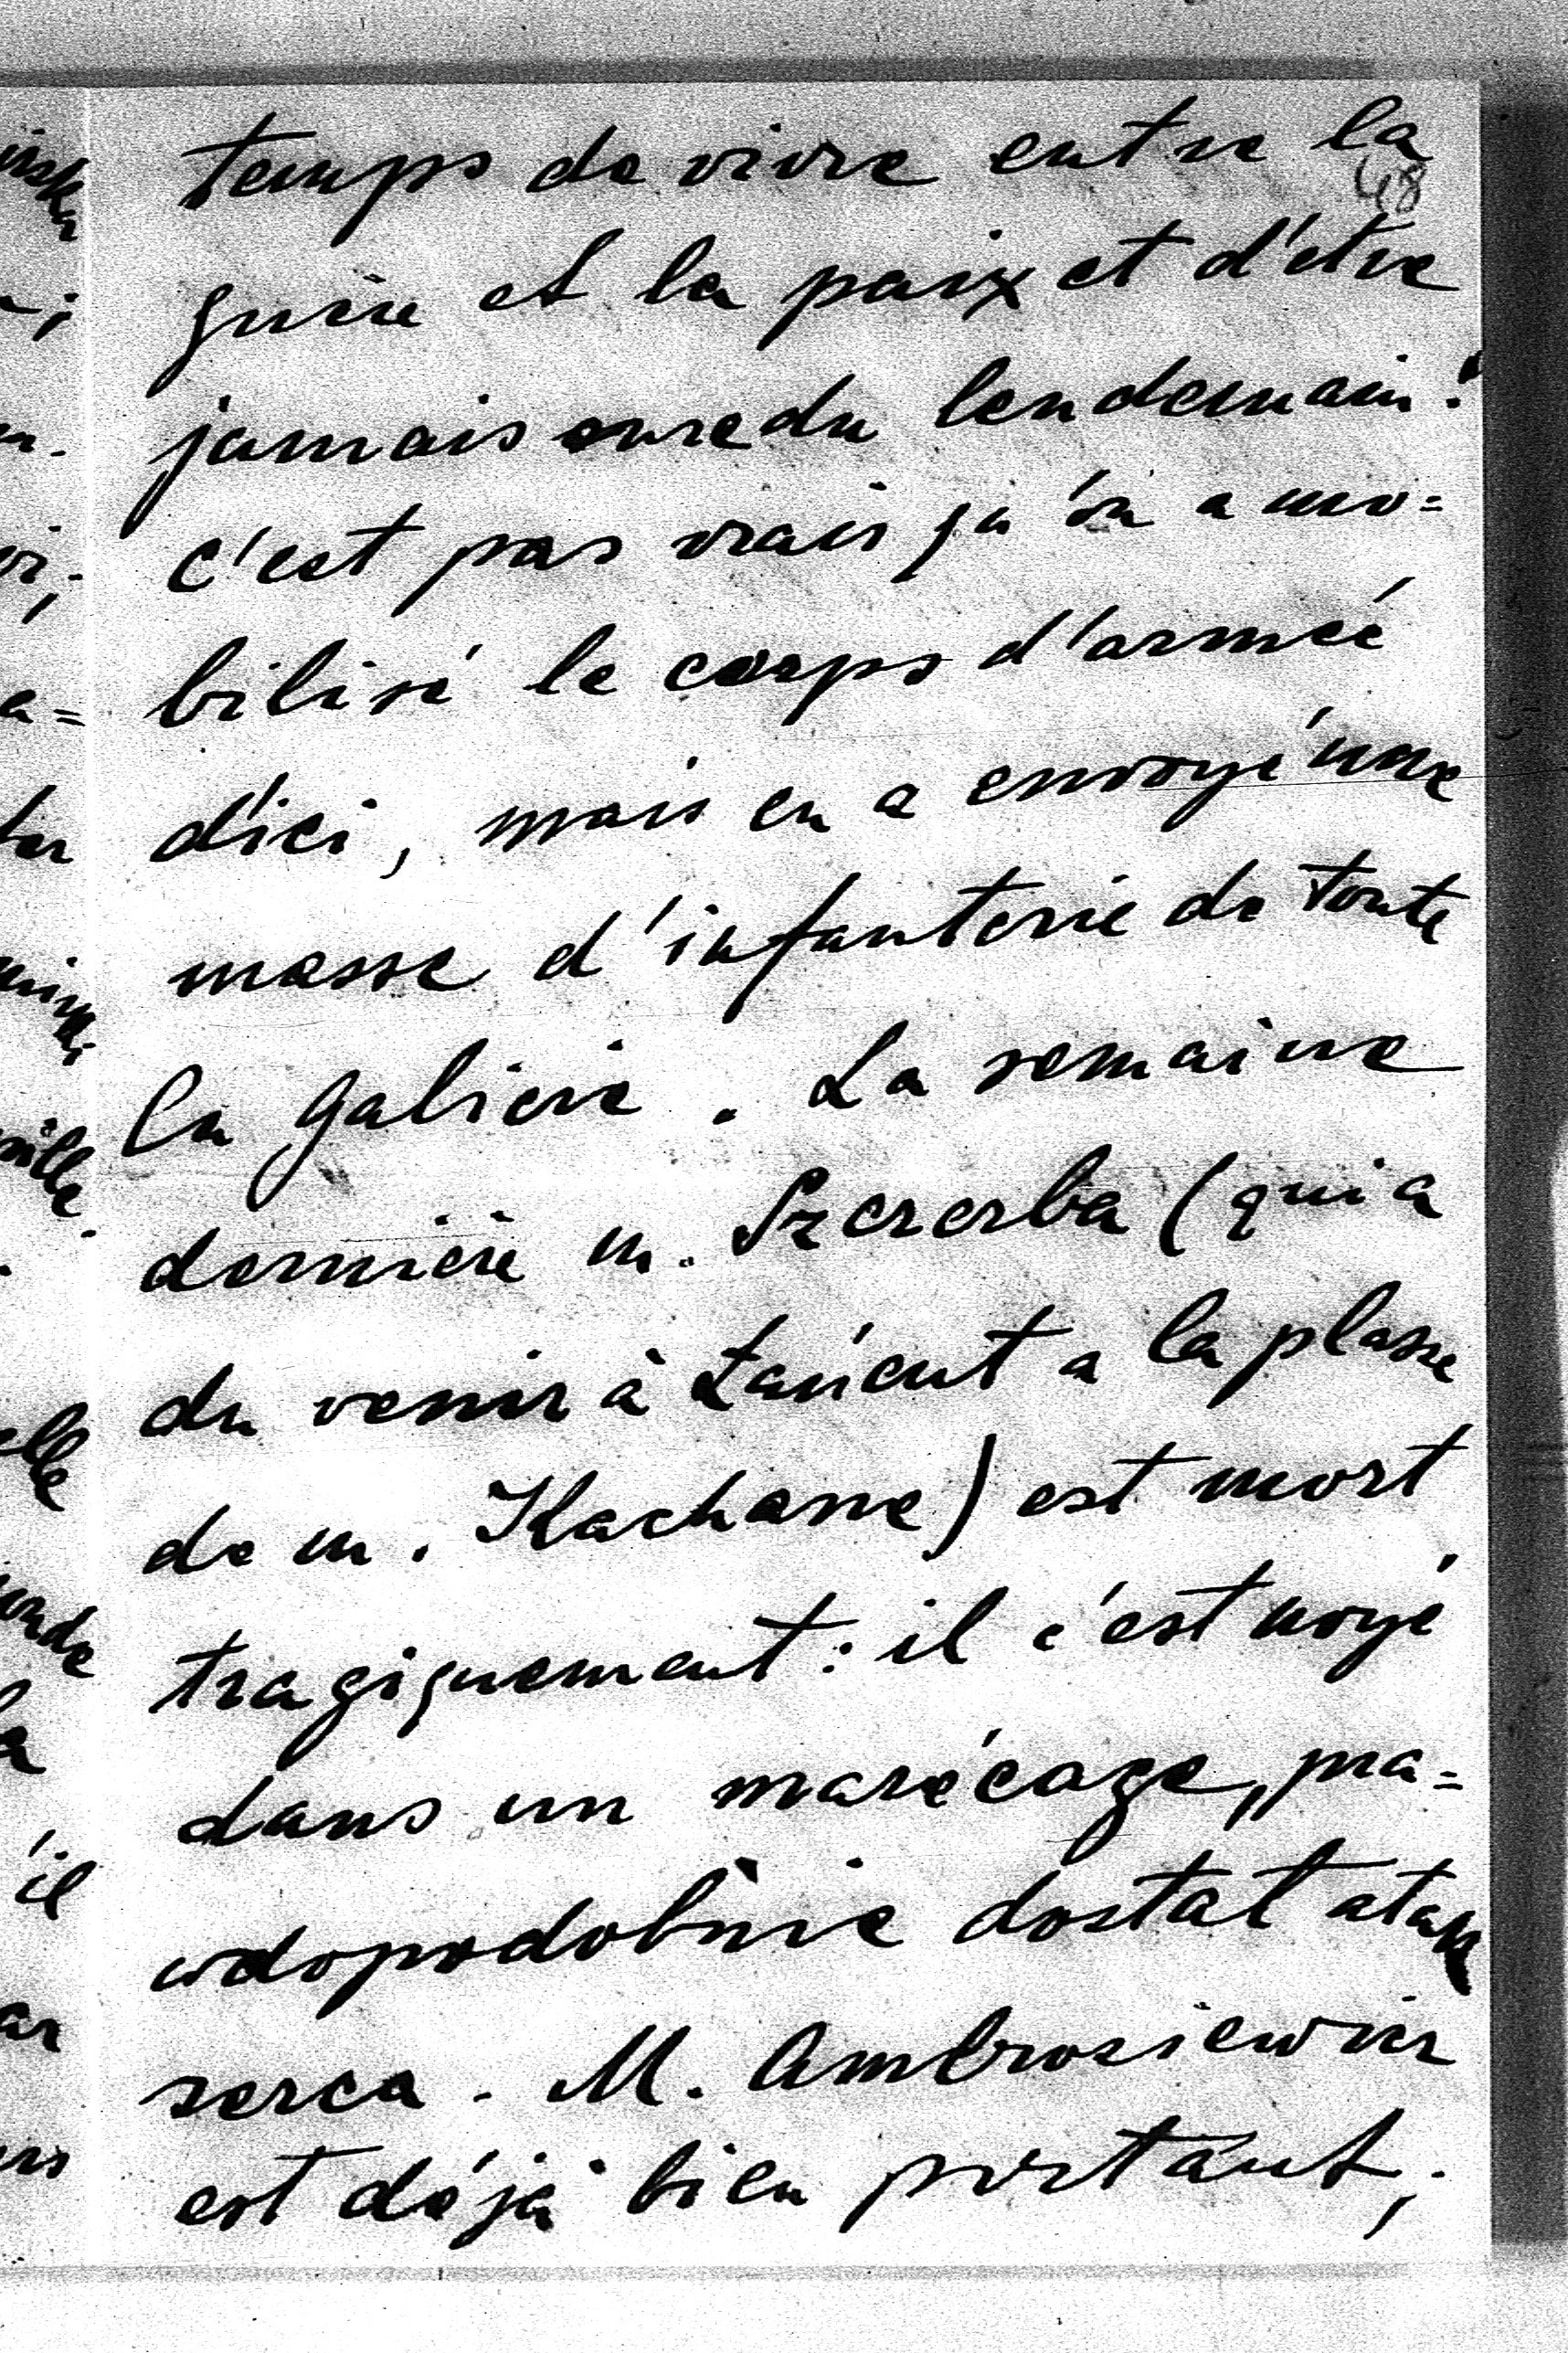 temps de vivre entre la
48
guère et la paix et d'être
jamais sure du lendemain!
c'est pas vrais qu'on a mo=
bilisé le corps d'armée
d'ici, mais en a envoyé une
masse d'infanterie de toute
la Galicie. La semaine
dernière m. Szczerba (qui a
du venir à Łańcut a la plasse
de m. Klachasne) est mort
tragiquement: il c'est noyé
dans un marécage, „pra=
wdopodobnie dostał atak
serca. M. Ambrosiewicz
est déjà bien portant,